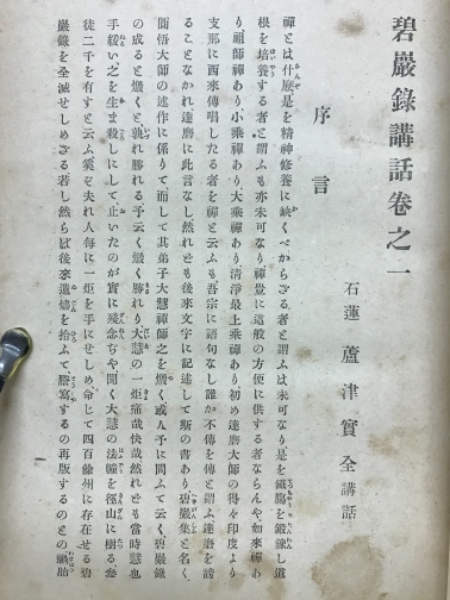 碧巖錄講話卷之一
石蓮 蘆津實全講話
序言
禪とは什麽、是を精神修養に缺くべからざる者と謂ふは未可なり、是を鐵膓を鍛錬し道
根を培養する者と謂ふも亦未可なり、禪豈に這般の方便に供する者ならんや、如來禪あ
り、祖師禪あり、小乘禪あり、大乘禪あり、淸淨最上乘禪あり、初め達磨大師の得々印度より
支那に西來傳唱したる者を禪と云ふも、吾宗に語句なし誰か不傳を傳と謂ふ、達磨を謗
ることなかれ、達磨に此言なし、然れども後來文字に記述して斯の書あり碧巖集と名く、
圓悟大師の述作に係りて、而して其弟子大慧禪師之を燬く、或人予に問ふて云く、碧巖錄
の成ると燬くと、孰れ勝れる、予云く燬く勝れり、大慧の一炬痛哉快哉然れども當時慧也
手緩い、之を生ま殺しにして、止いたのが實に殘念ぢや聞く大慧の法幢を徑山に樹る、參
徒二千を有すと云ふ奚ぞ夫れ人每に一炬を手にせしめ、命じて四百餘州に存在せる碧
巖錄を全滅せしめざる若し然らば後來遺燼を拾ふて、謄寫するの再版するのとの禍胎